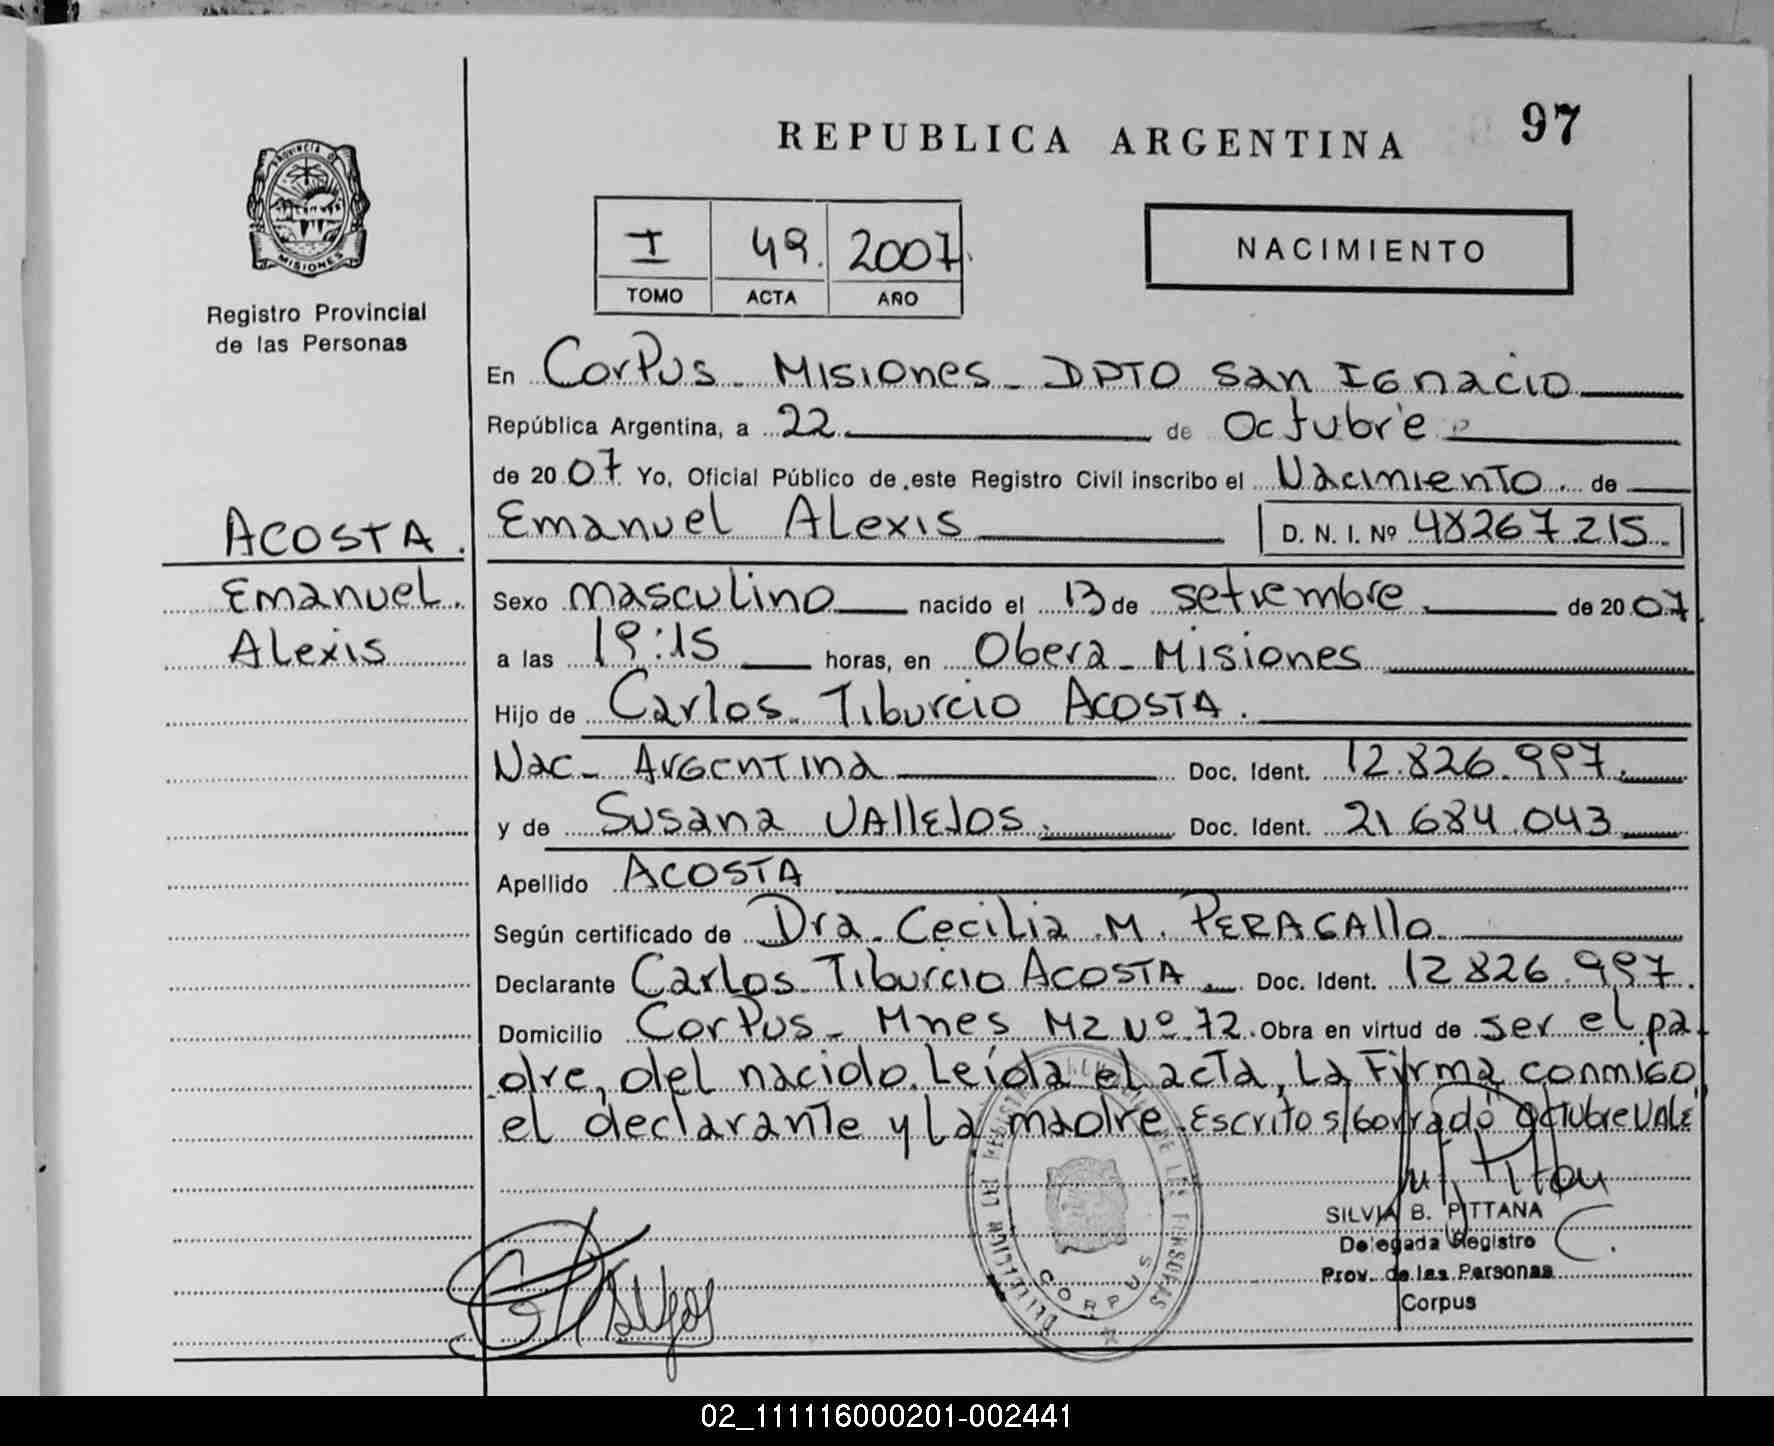 97
REPUBLICA ARGENTINA
PROVINCIA DE
MISIONES
Registro Provincial
de las Personas
I 49. 2007
TOMO ACTA AÑO
NACIMIENTO
En Corpus - Misiones - DPTO San Ignacio
República Argentina, a 22 de Octubre
de 2007 Yo, Oficial Público de este Registro Civil inscribo el Nacimiento de
ACOSTA.
Emanuel Alexis D. N. I. Nº 48267215
Emanuel.
Sexo masculino nacido el 13 de setiembre de 2007
Alexis
a las 19:15 horas, en Obera - Misiones
Hijo de Carlos Tiburcio ACOSTA.
Nac - Argentina Doc. Ident. 12.826.997.
y de Susana VALLEJOS. Doc. Ident. 21 684 043
Apellido ACOSTA
Según certificado de Dra. Cecilia M. PERAGALLO
Declarante Carlos Tiburcio ACOSTA Doc. Ident. 12 826.997.
Domicilio Corpus - Mnes Mz Nº 72. Obra en virtud de ser el pa
dre, del nacido. Leída el acta, La Firma conmigo
el declarante y La madre. Escrito s/borrado "octubre VALE
SILVIA B. PITTANA
Delegada Registro
Prov. de las Personas
Corpus
CORPUS
02_111116000201-002441